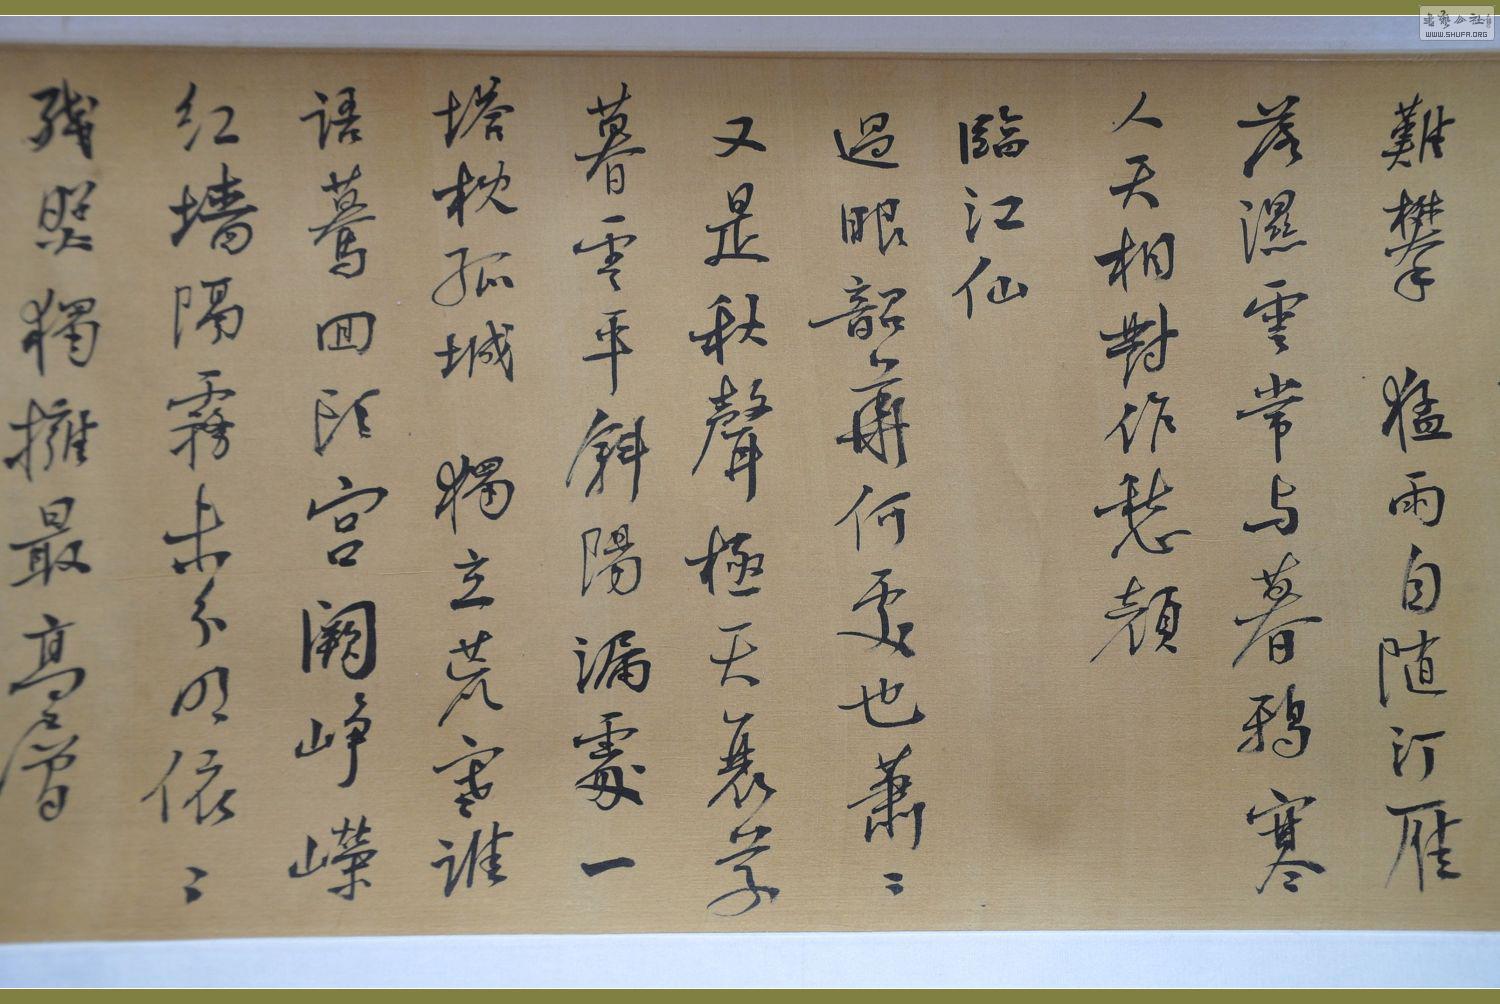 難攀 猛雨自随汀雁
落濕雲常与暮鴉寒
人天相對作愁顔
臨江仙
過眼韶華何處也蕭〻
又是秋聲極天衰草
暮雲平斜陽漏處一
塔枕孤城 獨立荒寒誰
語驀回頭宮闕崢嶸
紅墻隔霧未分明依〻
殘照獨擁最高層
WWW.SHUFA.ORG